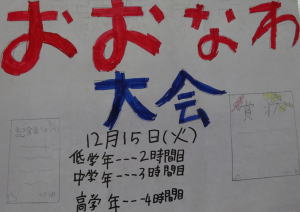 おおなわ
大会
12月15日(火)
低学年---2時間目
中学年---3時間目
高学年---4時間目
賞状